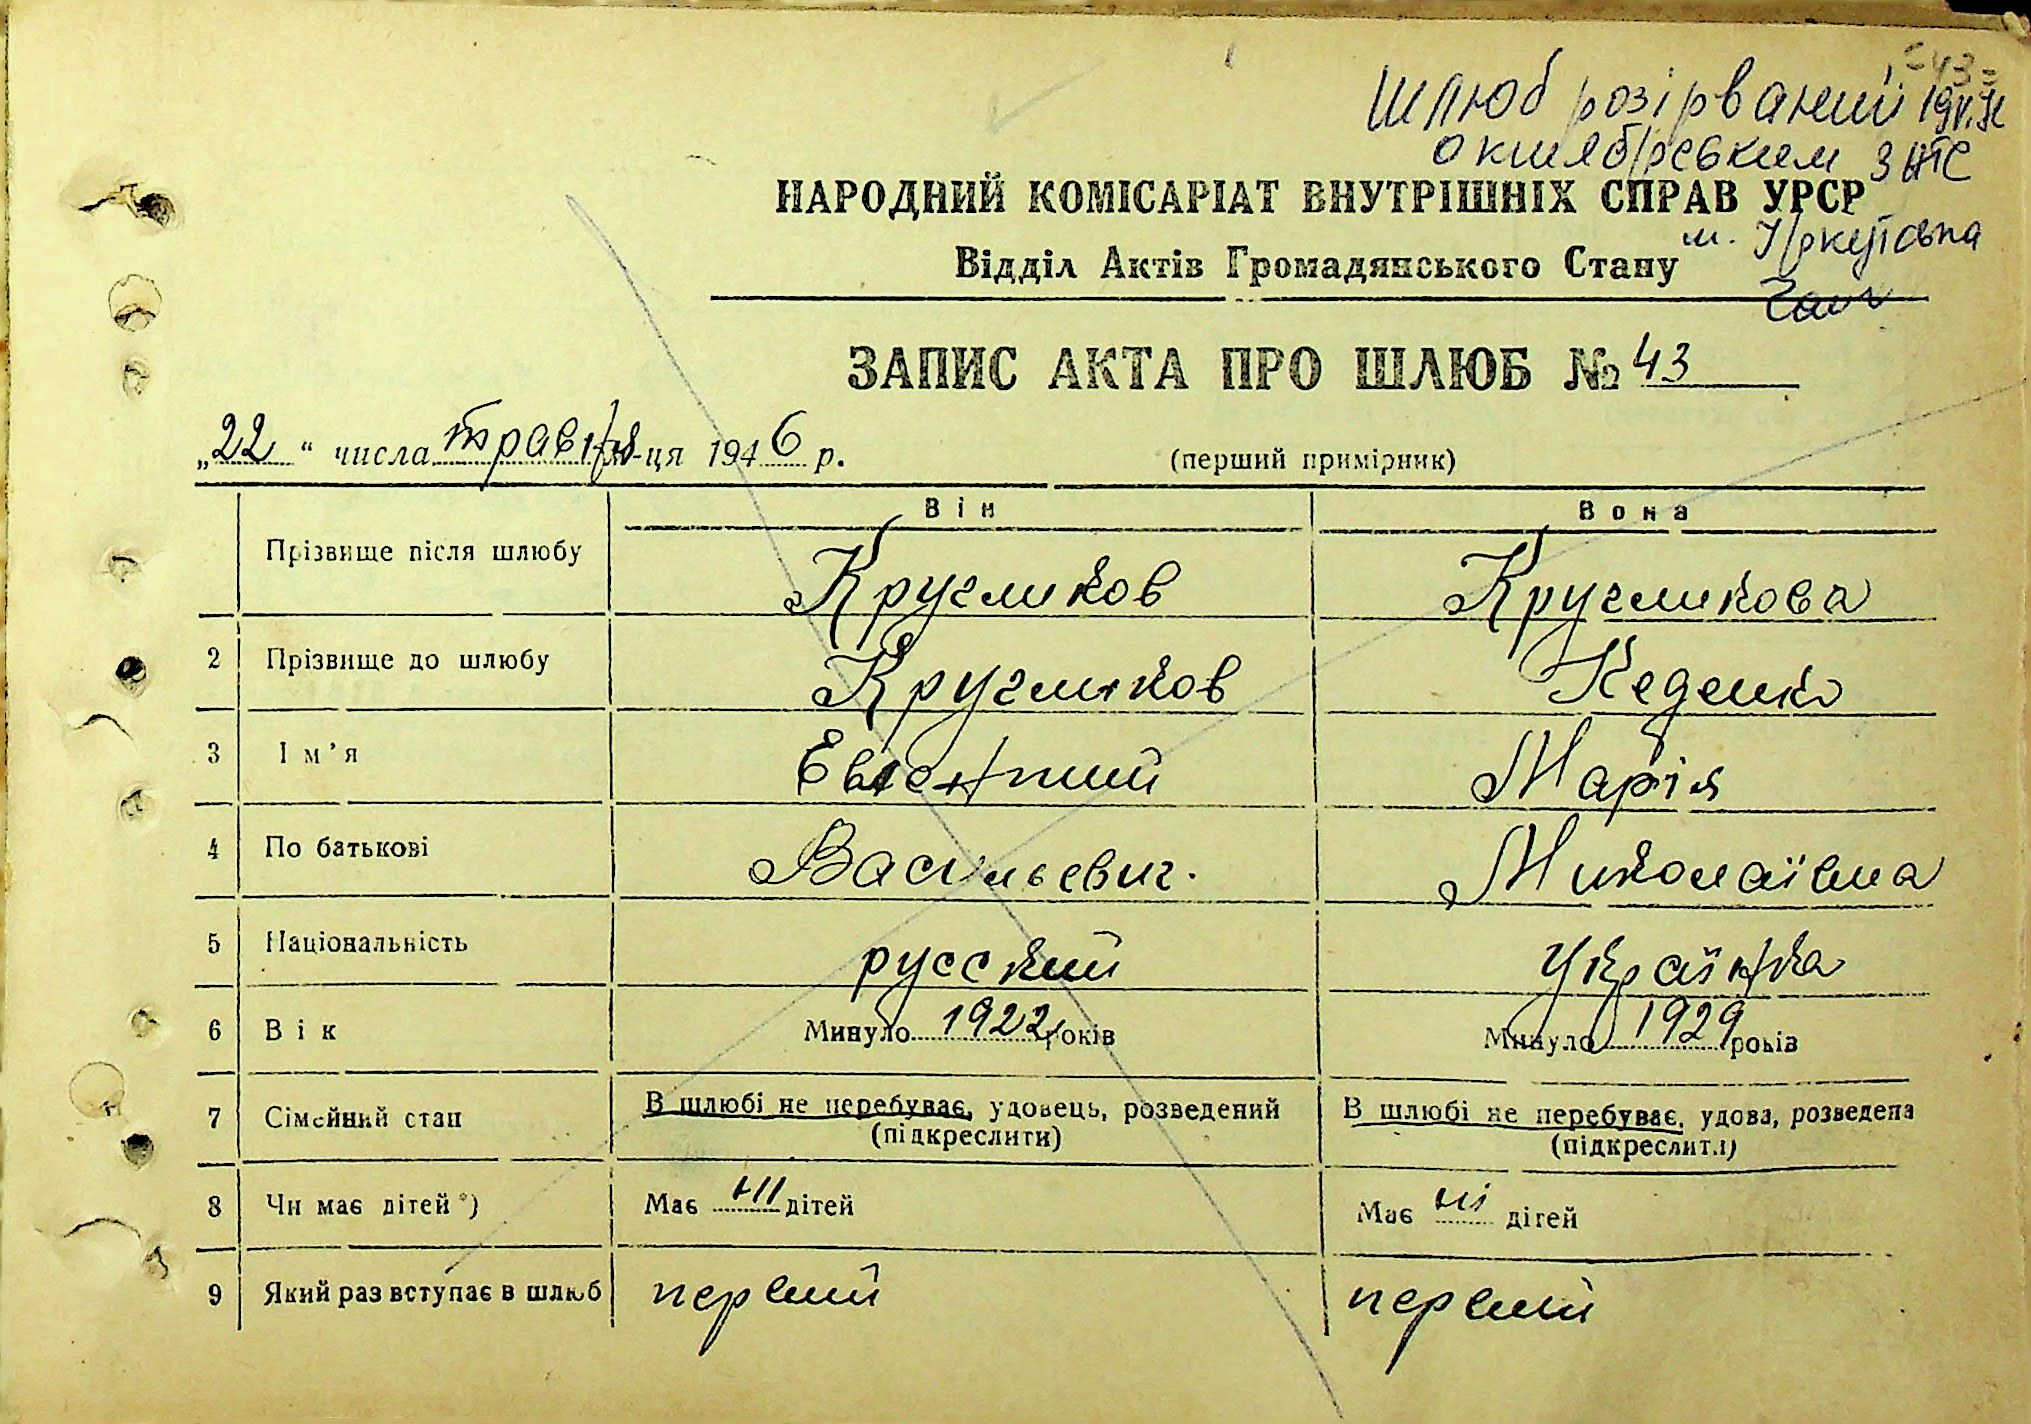 = 43 =
Шлюб розірваний
октябрським ЗАГС
НАРОДНИЙ КОМІСАРІАТ ВНУТРІШНІХ СПРАВ УРСР
м. Іркутська
Відділ Актів Громадянського Стану
ЗАПИС АКТА ПРО ШЛЮБ № 43
„22“ числа травня м-ця 1946 р. (перший примірник)
Він Вона
Прізвище після шлюбу Кругликов Кругликова
2 Прізвище до шлюбу Кругликов
3 Ім’я Марія
4 По батькові Васильевич. Миколаївна
5 Національність русский українка
6 Вік Минуло 1922 років Минуло 1929 років
7 Сімейний стан В шлюбі не перебуває, удовець, розведений В шлюбі не перебуває, удова, розведена
(підкреслити) (підкреслити)
8 Чи має дітей*) Має ні дітей Має ні дітей
9 Який раз вступає в шлюб перший перший